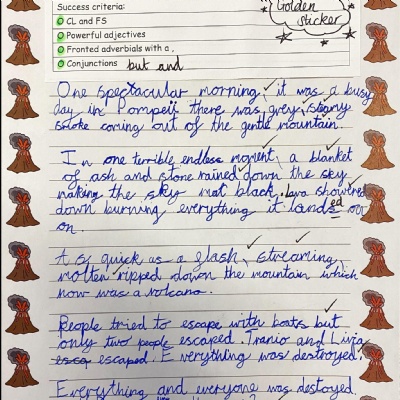 Success criteria:
CL and FS
Powerful adjectives
Fronted adverbials with a ,
Conjunctions but and
Golden
Sticker
One spectacular morning, it was a busy
day in Pompeii there was grey, steamy
smoke coming out of the gentle mountain.
In one terrible endless moment, a blanket
of ash and stone rained down the sky
making the sky mat black. lava showired
down burning everything it landed
on.
As quick as a flash, streaming,
molten ripped down the mountain which
now was a volcano.
People tried to escape with boats but
only two people escaped. Tranio and Livia
escaped. Everything was destroyed.
Everything and everyone was destoyed.